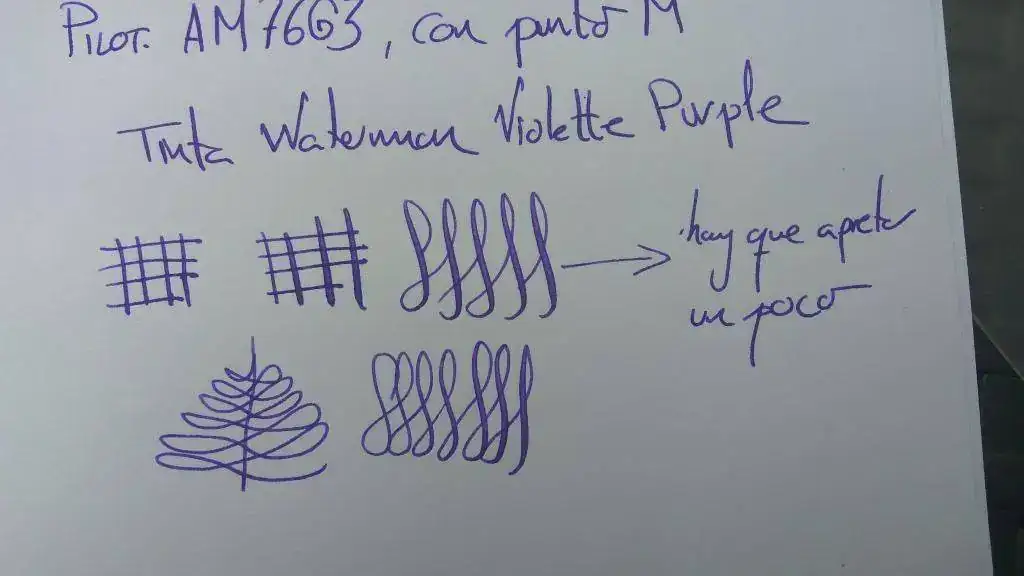 PILOT. AM7663, con punto M
Tinta Waterman Violette Purple
hay que apretar
un poco